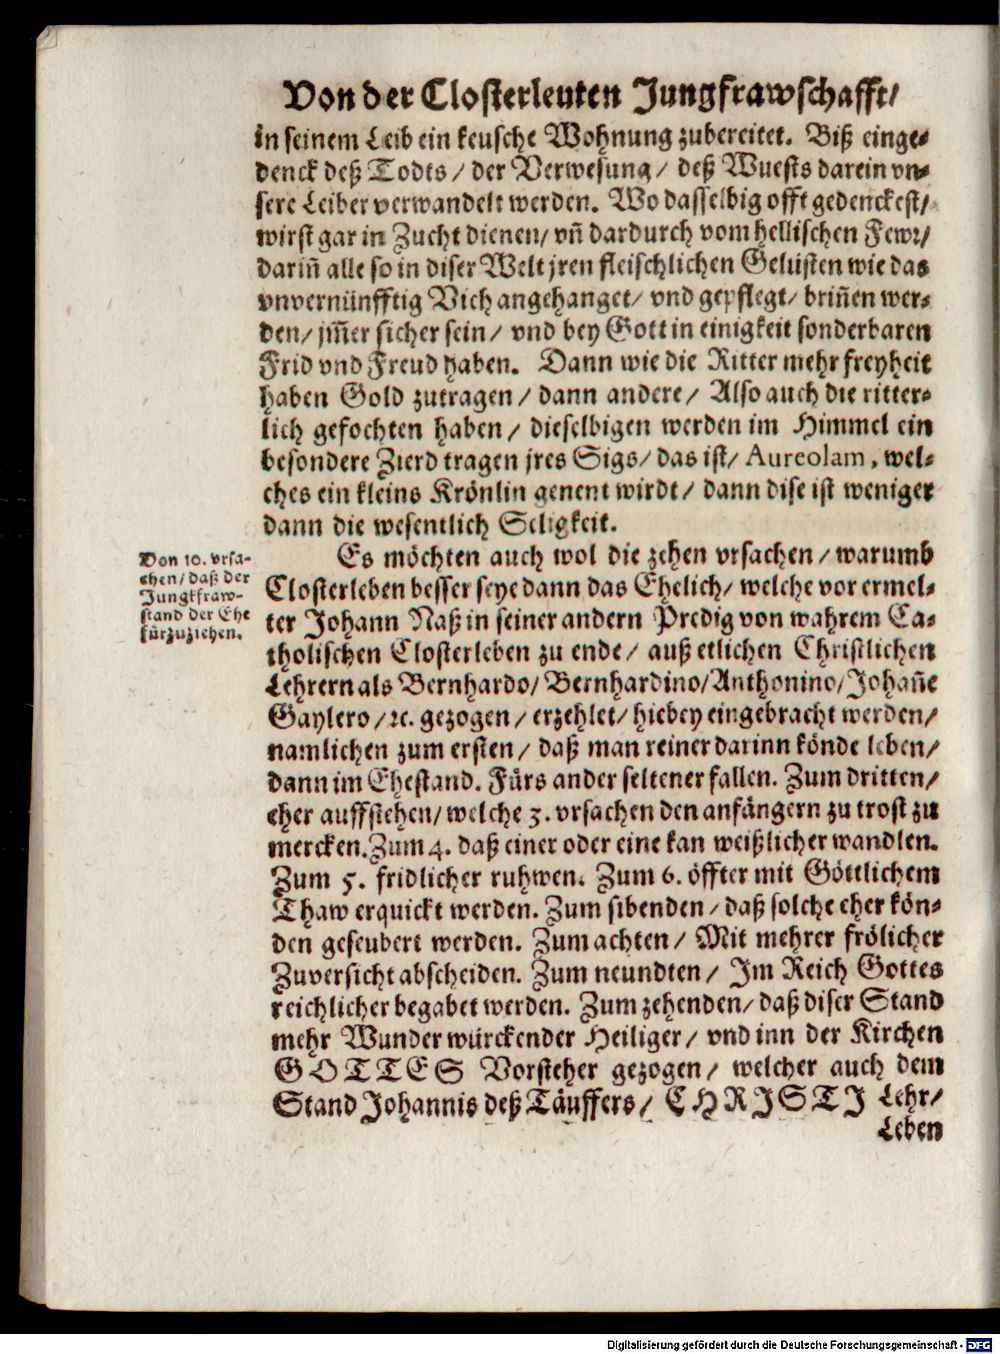 Von der Closterleuten Jungfrawschafft/
in seinem Leib ein keusche Wohnung zubereitet. Biß einge-
denck deß Todts/ der Verwesung/ deß Wuests darein vn-
sere Leiber verwandelt werden. Wo dasselbig offt gedenckest/
wirst gar in Zucht dienen/ vñ dardurch vom hellischen Fewr/
dariñ alle so in diser Welt jren fleischlichen Gelüsten wie das
vnvernünfftig Vich angehanget/ vnd gepflegt/ briñen wer-
den/ jm̃er sicher sein/ vnd bey Gott in einigkeit sonderbaren
Frid vnd Freud haben. Dann wie die Ritter mehr freyheit
haben Gold zutragen/ dann andere/ Also auch die ritter-
lich gefochten haben/ dieselbigen werden im Himmel ein
besondere Zierd tragen jres Sigs/ das ist/ Aureolam, wel-
ches ein kleins Krönlin genent wirdt/ dann dise ist weniger
dann die wesentlich Seligkeit.
Von 10. vrsa-
chen/ daß der
Jungkfraw-
stand der Ehe
fürzuziehen.
Es möchten auch wol die zehen vrsachen/ warumb
Closterleben besser seye dann das Ehelich/ welche vor ermel-
ter Johann Naß in seiner andern Predig von wahrem Ca-
tholischen Closterleben zu ende/ auß etlichen Christlichen
Lehrern als Bernhardo/ Bernhardino/ Anthonino/ Johañe
Gaylero/ ꝛc. gezogen/ erzehlet/ hiebey eingebracht werden/
namlichen zum ersten/ daß man reiner darinn könde leben/
dann im Ehestand. Fürs ander seltener fallen. Zum dritten/
eher auffstehen/ welche 3. vrsachen den anfängern zu trost zu
mercken. Zum 4. daß einer oder eine kan weißlicher wandlen.
Zum 5. fridlicher ruhwen. Zum 6. öffter mit Göttlichem
Thaw erquickt werden. Zum sibenden/ daß solche eher kön-
den geseubert werden. Zum achten/ Mit mehrer frölicher
Zuversicht abscheiden. Zum neundten/ Im Reich Gottes
reichlicher begabet werden. Zum zehenden/ daß diser Stand
mehr Wunder würckender Heiliger/ vnd inn der Kirchen
GOTTES Vorsteher gezogen/ welcher auch dem
Stand Johannis deß Täuffers/ CHRISTI Lehr/
Leben
Digitalisierung gefördert durch die Deutsche Forschungsgemeinschaft - DFG